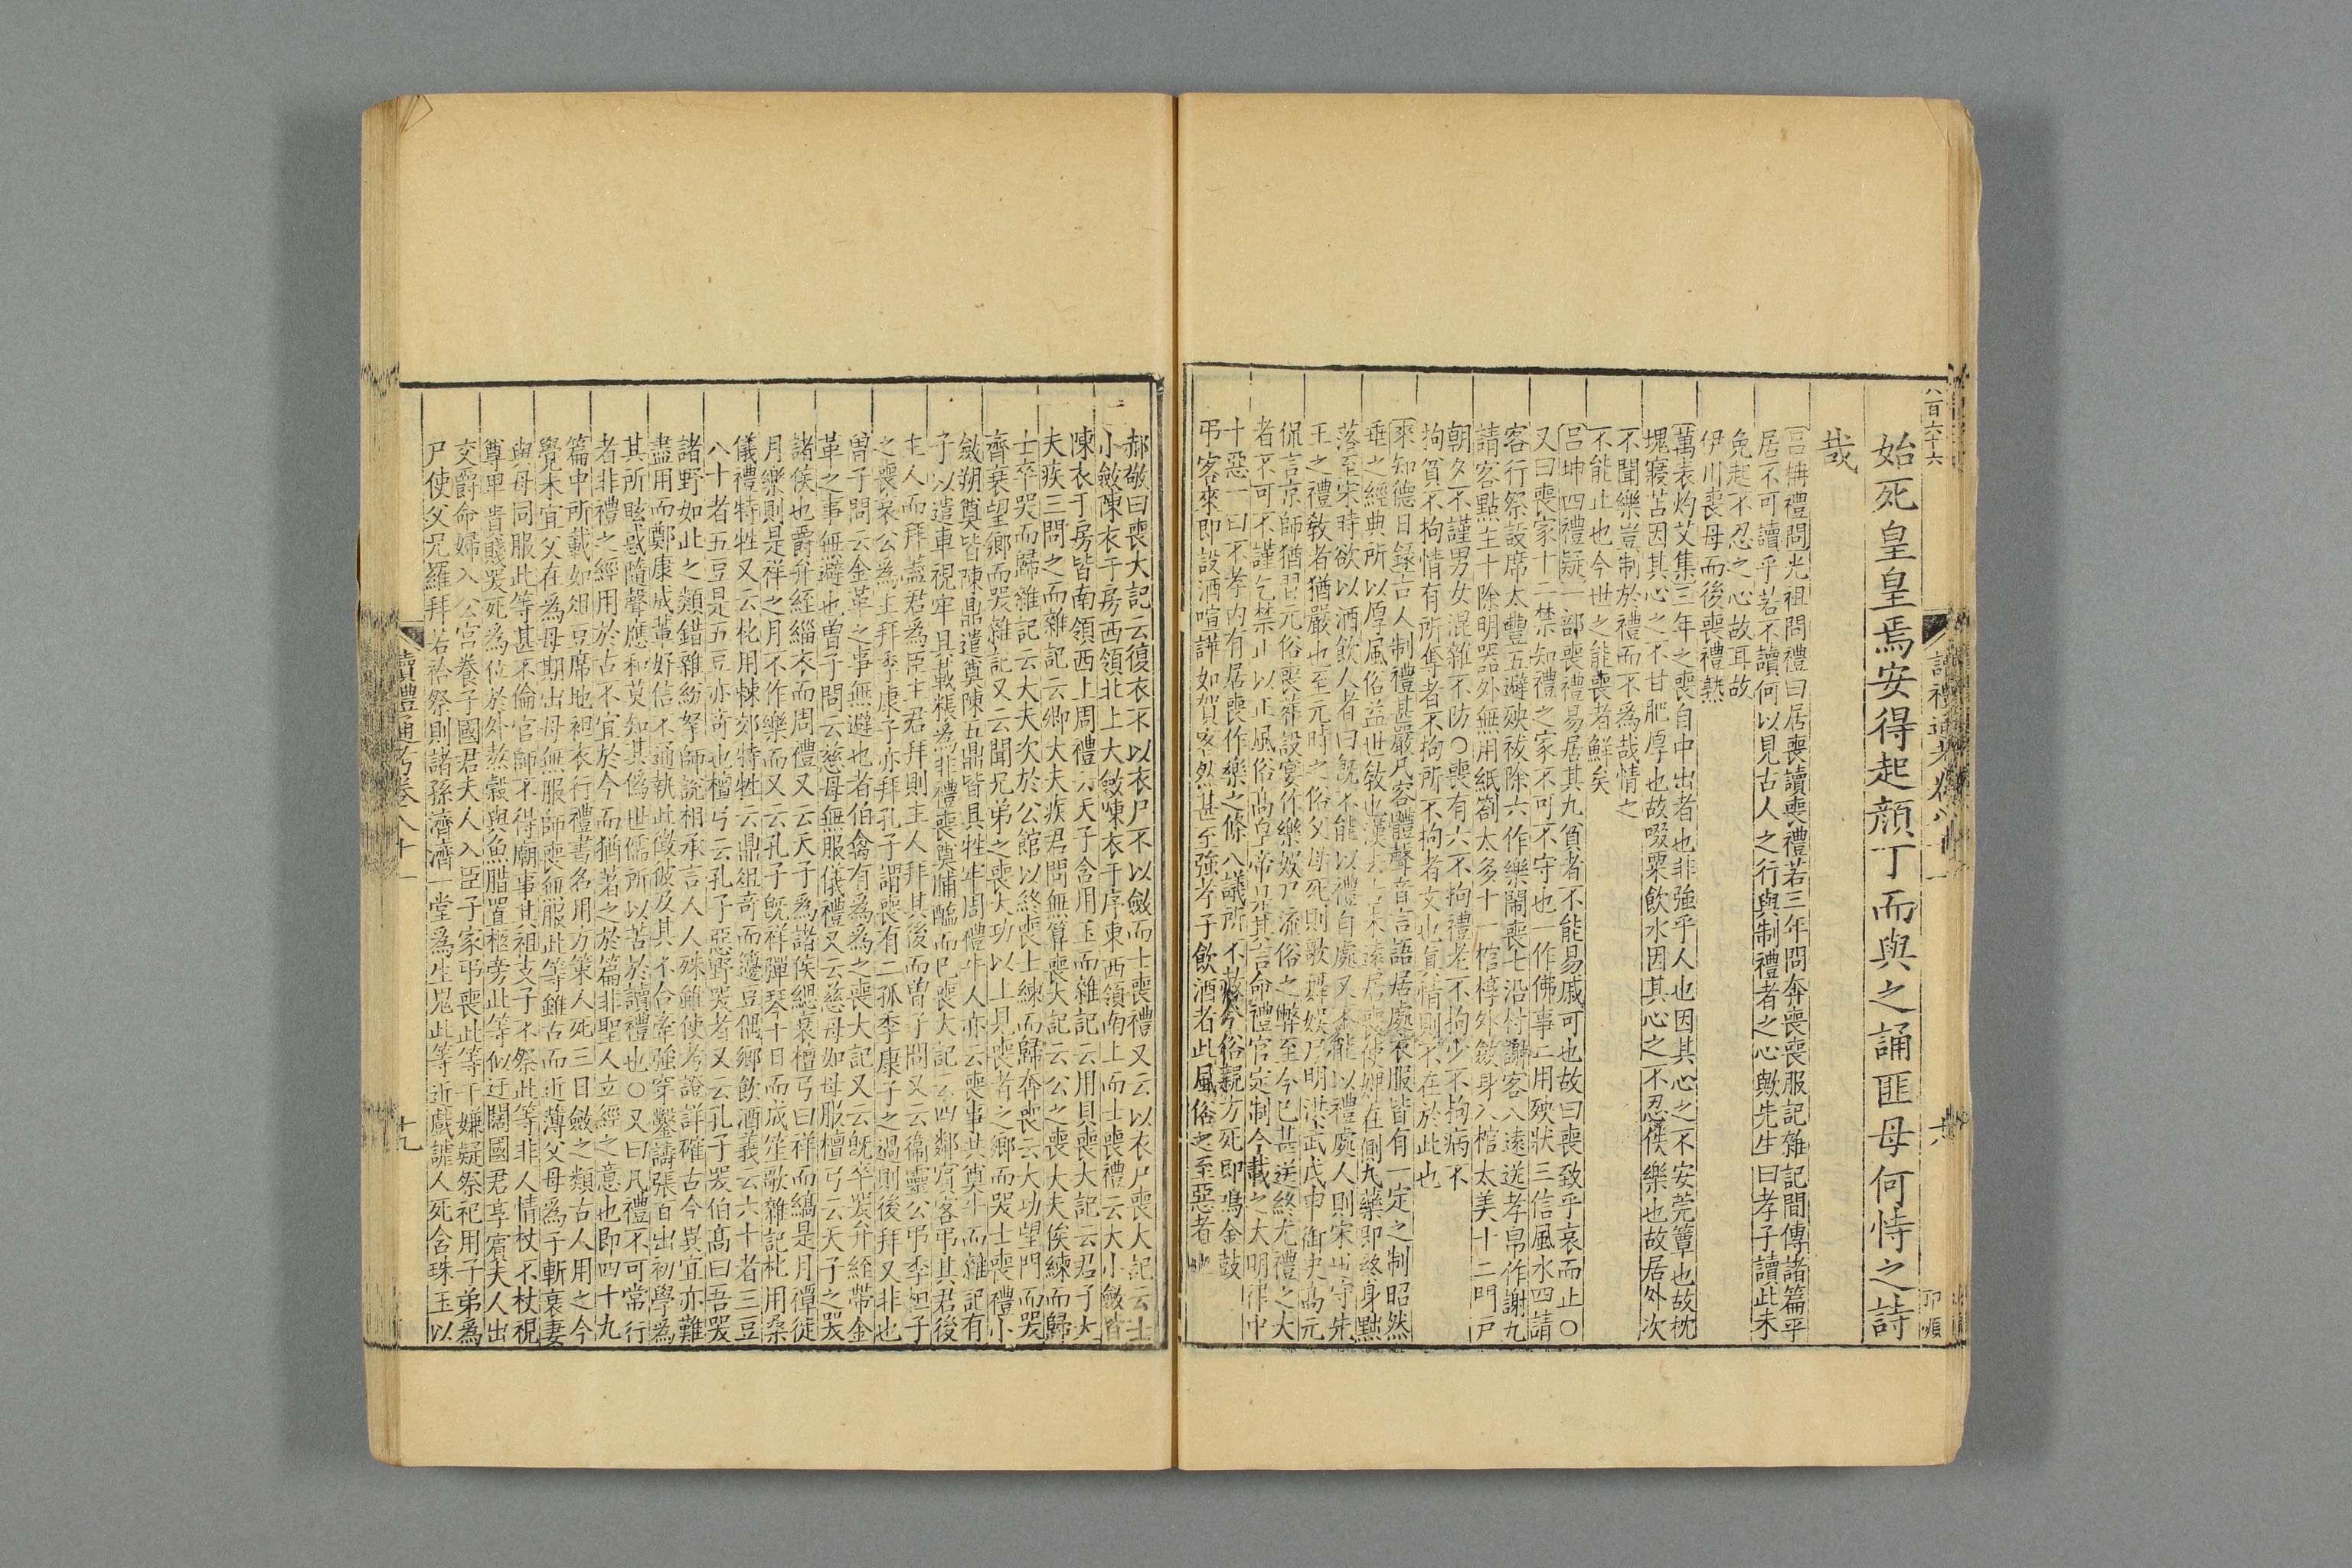 八百六十六
讀禮通考卷八十一
十八
始死皇皇焉安得起顏丁而與之誦匪母何恃之詩
哉
呂柟禮問光祖問禮曰居喪讀喪禮若三年問奔喪喪服記雜記間傳諸篇平
居不可讀乎若不讀何以見古人之行與制禮者之心歟先生曰孝子讀此未
免起不忍之心故耳故
伊川喪母而後喪禮熟
萬表灼艾集三年之喪自中出者也非強乎人也因其心之不安莞簟也故枕
塊寢苫因其心之不甘肥厚也故啜粟飲水因其心之不忍佚樂也故居外次
不聞樂豈制於禮而不為哉情之
不能止也今世之能喪者鮮矣
呂坤四禮疑一部喪禮易居其九貧者不能易戚可也故曰喪致乎哀而止○
又曰喪家十二禁知禮之家不可不守也一作佛事二用殃狀三信風水四請
客行祭設席太豐五避殃祓除六作樂鬧喪七沿付謝客八遠送孝帛作謝九
請客點主十除明器外無用紙劄太多十一棺椁外斂身入棺太美十二門尸
朝夕不謹男女混雜不防○喪有六不拘禮老不拘少不拘病不
拘貧不拘情有所奪者不拘所不拘者文也實情則不在於此也
來知德日錄古人制禮甚嚴凡容體聲音言語居處衣服皆有一定之制昭然
垂之經典所以厚風俗益世敎也漢去古不遠居喪使婢在側丸藥即終身點
落至宋時欲以酒飲人者曰旣不能以禮自處又不能以禮處人則宋世守先
王之禮敎者猶嚴也至元時之俗父母死則歌舞娛尸明洪武戊申御史高元
侃言京師猶習元俗喪葬設宴作樂娛尸流俗之弊至今已甚送終尤禮之大
者不可不謹乞禁止以正風俗高皇帝是其言命禮官定制今載之大明律中
十惡一曰不孝內有居喪作樂之條八議所不赦今俗親方死即鳴金鼓
弔客來即設酒喧譁如賀客然甚至強孝子飲酒者此風俗之至惡者也
郝敬曰喪大記云復衣不以衣尸不以斂而士喪禮又云以衣尸喪大記云士
小斂陳衣于房西領北上大斂陳衣于序東西領南上而士喪禮云大小斂皆
陳衣于房皆南領西上周禮云天子含用玉而雜記云用貝喪大記云君子大
夫疾三問之而雜記云卿大夫疾君問無算喪大記云公之喪大夫俟練而歸
士卒哭而歸雜記云大夫次於公館以終喪士練而歸奔喪云大功望門而哭
齊衰望鄉而哭雜記又云聞兄弟之喪大功以上見喪者之鄉而哭士喪禮小
斂朔奠皆陳鼎遣奠陳五鼎皆具牲牢周禮牛人亦云喪事共奠牛而雜記有
子以遣車視牢具載粻為非禮喪奠脯醢而已喪大記云四鄰賓客弔其君後
主人而拜蓋君為臣主君拜則主人拜其後而曾子問又云衞靈公弔季桓子
之喪哀公為主拜季康子亦拜孔子謂喪有二孤季康子之過則後拜又非也
曾子問云金革之事無避也者伯禽有為為之喪大記又云旣卒哭弁絰帶金
革之事無避也曾子問云慈母無服儀禮又云慈母如母服檀弓云天子之哭
諸侯也爵弁絰緇衣而周禮又云天子為諸侯緦衰檀弓曰祥而縞是月禫徙
月樂則是祥之月不作樂而又云孔子旣祥彈琴十日而成笙歌雜記枇用桑
儀禮特牲又云枇用棘郊特牲云鼎俎奇而籩豆偶鄉飲酒義云六十者三豆
八十者五豆是五豆亦奇也檀弓云孔子惡野哭者又云孔子哭伯高曰吾哭
諸野如此之類錯雜紛拏師說相承言人人殊雖使考證詳確古今異宜亦難
盡用而鄭康成輩好信不通執此徵彼及其不合牽強穿鑿譸張百出初學為
其所眩惑隨聲應和莫知其僞世儒所以苦於讀禮也○又曰凡禮不可常行
者非禮之經用於古不宜於今而猶著之於篇非聖人立經之意也即四十九
篇中所載如俎豆席地袒衣行禮書名用方策人死三日斂之類古人用之今
覺未宜父在為母期出母無服師喪無服此等雖古而近薄父母為子斬衰妻
與母同服此等甚不倫官師不得廟事其祖支子不祭此等非人情杖不杖視
尊卑貴賤哭死為位於外熬穀與魚腊置柩旁此等似迂闊國君享賓夫人出
交爵命婦入公宮養子國君夫人入臣子家弔喪此等干嫌疑祭祀用子弟為
尸使父兄羅拜若祫祭則諸孫濟濟一堂為生鬼此等近戲謔人死含珠玉以
讀禮通考卷八十一
十九